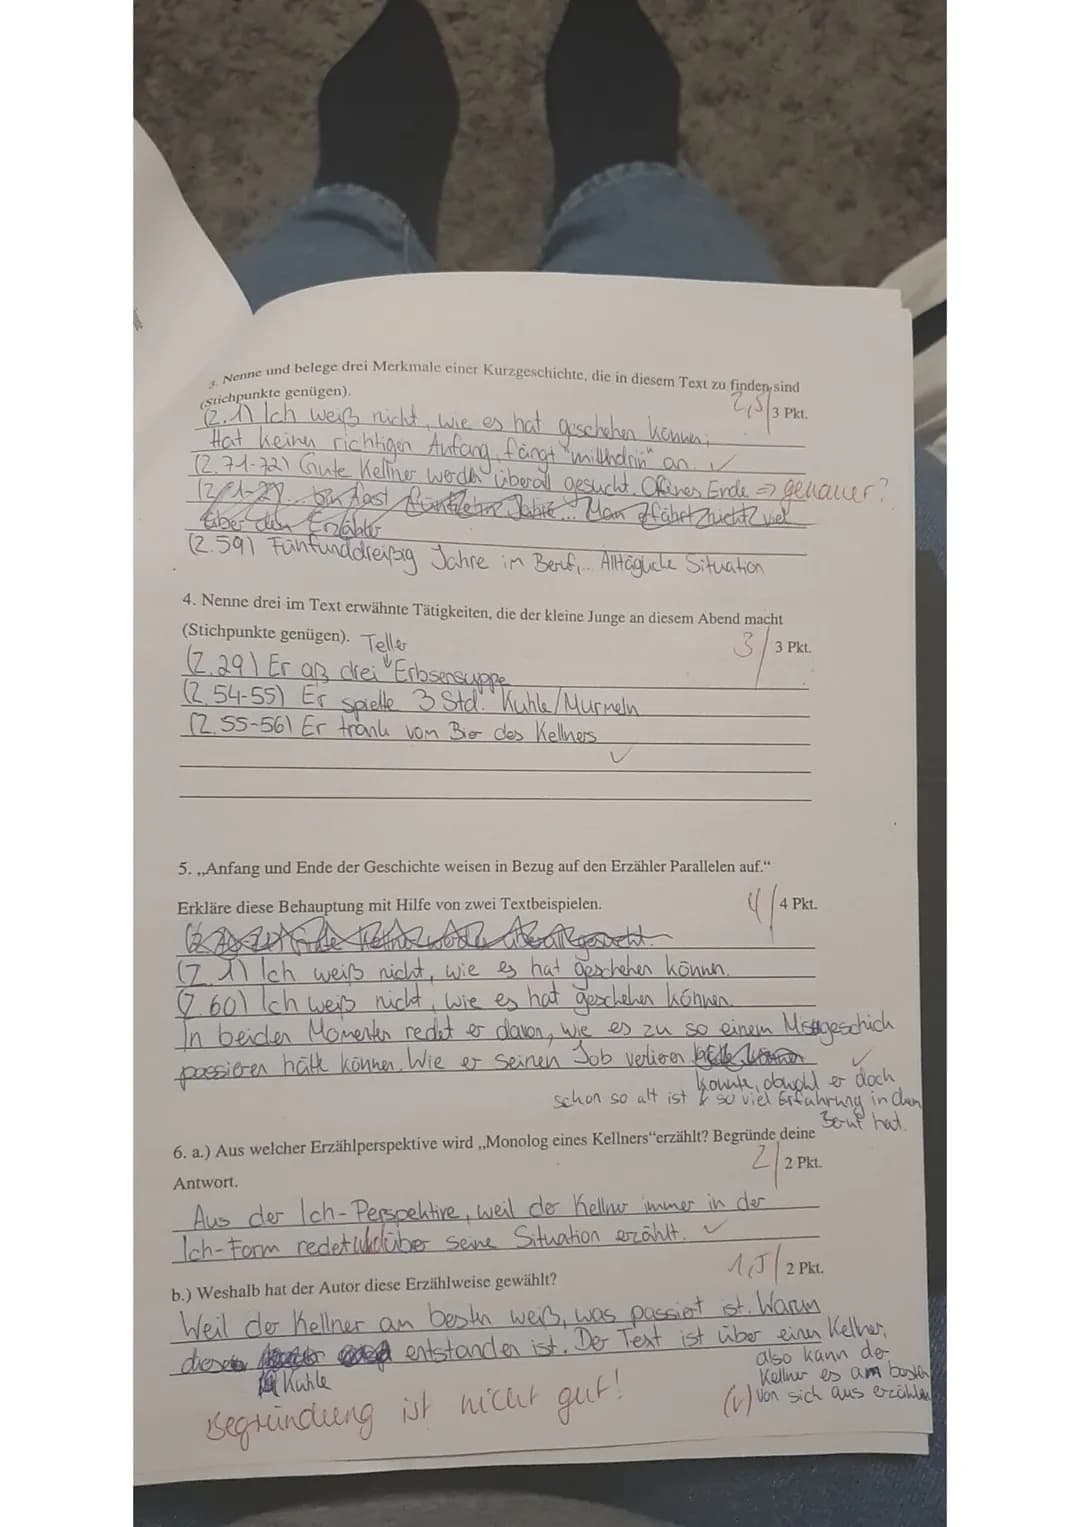 3. Nenne und belege drei Merkmale einer Kurzgeschichte, die in diesem Text zu finden sind
(Stichpunkte genügen).
2,5/3 Pkt.
(Z.1) Ich weiß nicht, wie es hat geschehen können;
Hat keinen richtigen Anfang, fängt "mittendrin" an. ✓
(Z.71-72) Gute Kellner werden überall gesucht. Offenes Ende => genauer?
bin fast fünfzehn Jahre... Man erfährt nicht viel
über den Erzähler
(Z.59) Fünfunddreißig Jahre im Beruf,.. Alltägliche Situation
4. Nenne drei im Text erwähnte Tätigkeiten, die der kleine Junge an diesem Abend macht
(Stichpunkte genügen).
3/3 Pkt.
Teller
(Z.29) Er aß drei Erbsensuppe
(Z.54-55) Er spielte 3 Std. Kuhle/Murmeln
(Z.55-56) Er trank vom Bier des Kellners
✓
5. „Anfang und Ende der Geschichte weisen in Bezug auf den Erzähler Parallelen auf."
Erkläre diese Behauptung mit Hilfe von zwei Textbeispielen.
4/4 Pkt.
(Z.1) Ich weiß nicht, wie es hat geschehen können.
(Z.60) Ich weiß nicht, wie es hat geschehen können.
In beiden Momenten redet er davon, wie es zu so einem Missgeschick
passieren hätte können. Wie er seinen Job verlieren
konnte, obwohl er doch ✓
schon so alt ist & so viel Erfahrung in dem
Beruf hat.
6. a.) Aus welcher Erzählperspektive wird „Monolog eines Kellners"erzählt? Begründe deine
Antwort.
2/2 Pkt.
Aus der Ich-Perspektive, weil der Kellner immer in der
Ich-Form redet und über seine Situation erzählt. ✓
b.) Weshalb hat der Autor diese Erzählweise gewählt?
1,5/2 Pkt.
Weil der Kellner am besten weiß, was passiert ist. Warum
diese entstanden ist. Der Text ist über einen Kellner,
Kuhle
also kann der
Kellner es am besten
(✓) von sich aus erzählen
Begründung ist nicht gut!